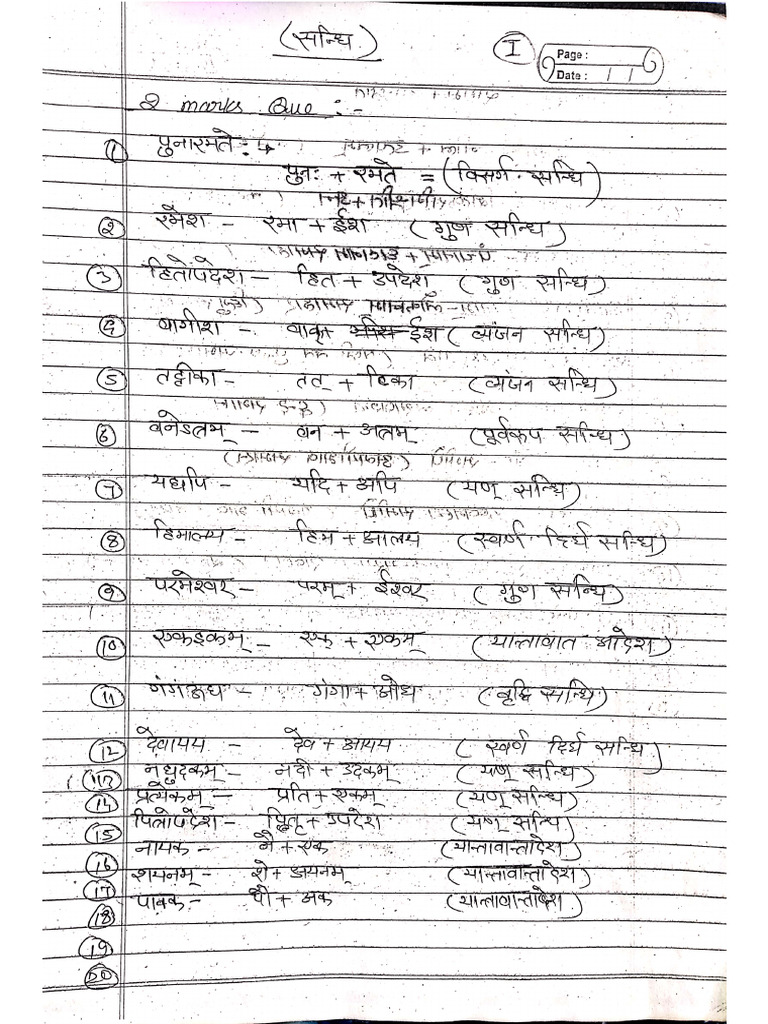 (सन्धि)
I
Page :
Date : / /
2 marks Que :-
① पुनारमते :-
पुनः + रमते = (विसर्ग सन्धि)
② रमेश - रमा + ईश (गुण सन्धि)
③ हितोपदेश - हित + उपदेश (गुण सन्धि)
④ वागीश - वाक् + ईश (व्यंजन सन्धि)
⑤ तट्टीका - तत् + टिका (व्यंजन सन्धि)
⑥ वनेऽत्रम् - वन + अत्रम् (पूर्वरूप सन्धि)
⑦ यद्यपि - यदि + अपि (यण् सन्धि)
⑧ हिमालय - हिम + आलय (स्वर्ण दिर्घ सन्धि)
⑨ परमेश्वर - परम् + ईश्वर (गुण सन्धि)
⑩ एकम् (यान्तावात आदेश)
⑪ गंगा + ओध (वृद्धि सन्धि)
⑫ देवायय - देव + आयय (स्वर्ण दिर्घ सन्धि)
नद्युदकम् - नदी + उदकम् (यण् सन्धि)
⑭ प्रत्येकम् - प्रति + एकम् (यण् सन्धि)
⑮ पित्रोपदेश - पितृ + उपदेश (यण् सन्धि)
नायक - नै + एक (यान्तावान्तादेश)
⑯ शयनम् - शे + अयनम् (यान्तावान्तादेश)
⑰ पावक - पौ + अक (यान्तावान्तादेश)
⑱
⑲
⑳